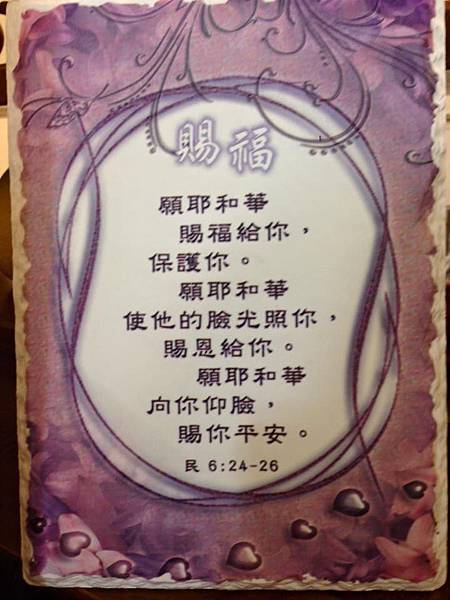 賜福
願耶和華
賜福給你，
保護你。
願耶和華
使他的臉光照你，
賜恩給你。
願耶和華
向你仰臉，
賜你平安。
民 6:24-26